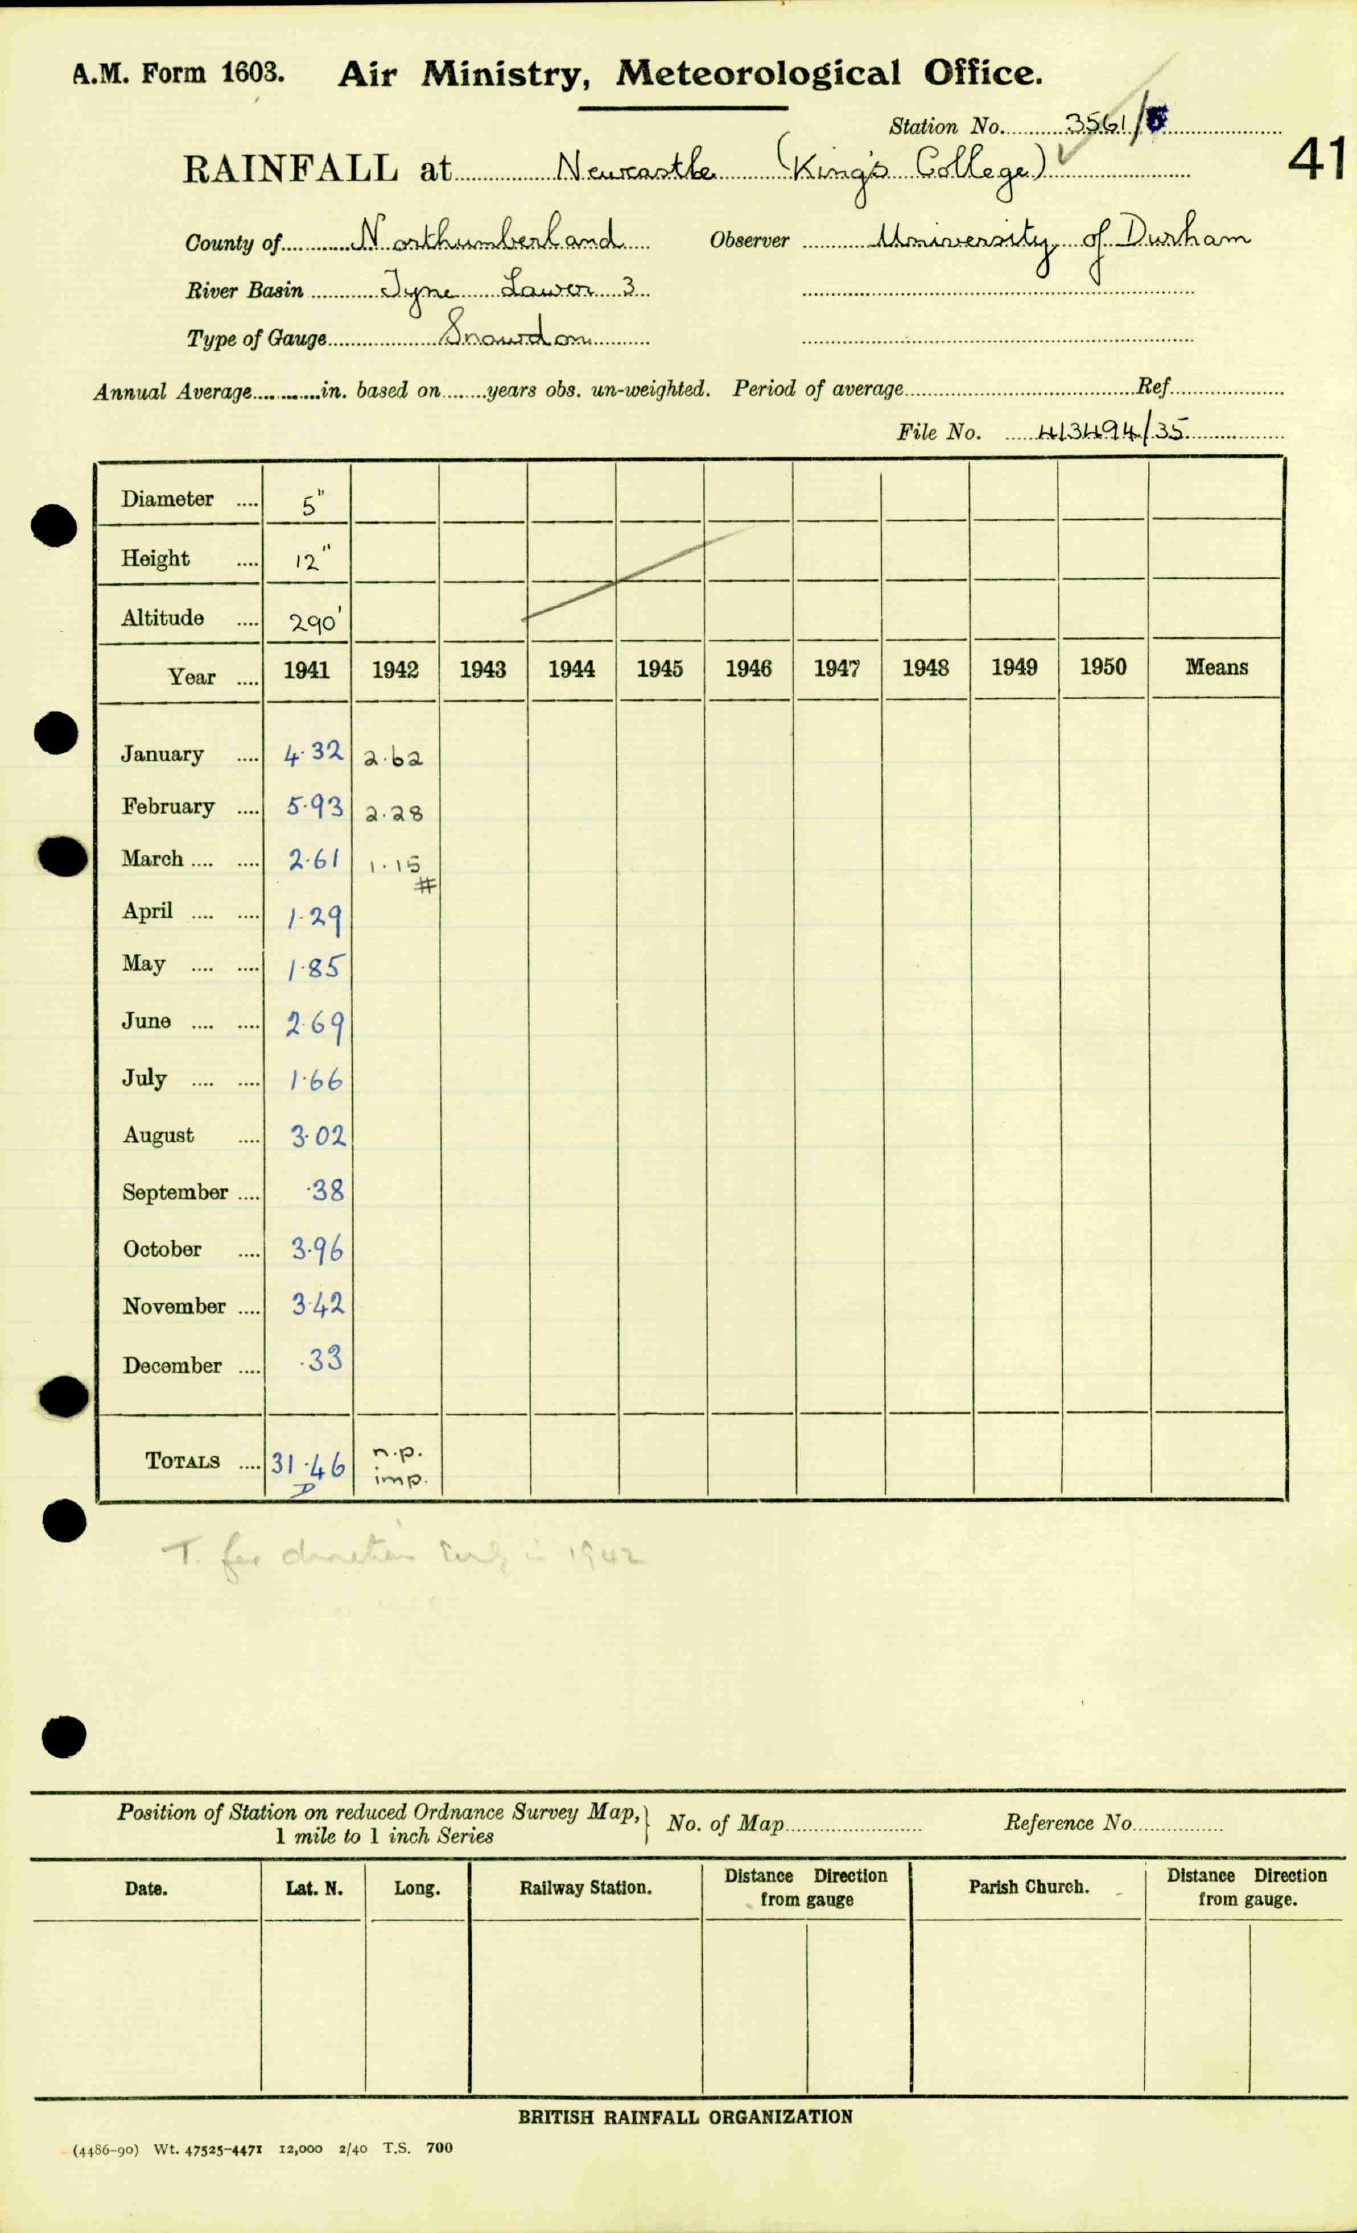 A.M. Form 1603. Air Ministry, Meteorological Office.
Station No. 3561/
41
RAINFALL at Newcastle (King's College)
County of Northumberland Observer University of Durham
River Basin Tyne Lower 3
Type of Gauge Snowdon
Annual Average in. based on years obs. un-weighted. Period of average Ref.
File No. 413494/35
Diameter 5"
Height 12"
Altitude 290'
Year 1941 1942 1943 1944 1945 1946 1947 1948 1949 1950 Means
January 4.32 2.62
February 5.93 2.28
March 2.61 1.15
#
April 1.29
May 1.85
June 2.69
July 1.66
August 3.02
September .38
October 3.96
November 3.42
December .33
TOTALS 31.46 n.p.
imp.
T. for in 1942
Position of Station on reduced Ordnance Survey Map,
1 mile to 1 inch Series
No. of Map Reference No.
Date. Lat. N. Long. Railway Station. Distance Direction from gauge Parish Church. Distance Direction from gauge.
BRITISH RAINFALL ORGANIZATION
(4486-90) Wt. 47525-4471 12,000 2/40 T.S. 700